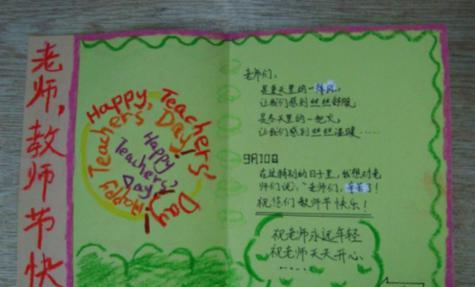 老师,教师节快
Happy Teachers' Day!
Happy Teachers' Day!
Happy
Teachers'
Day!
老师们,
是夏天里的一阵风,
让我们感到丝丝舒服,
是冬天里的一把火,
让我们感到丝丝温暖……
9月10日
在这特别的日子里,我想对老
师们说:“老师们,辛苦了!
祝您们教师节快乐!
祝老师永远年轻
祝老师天天开心
……